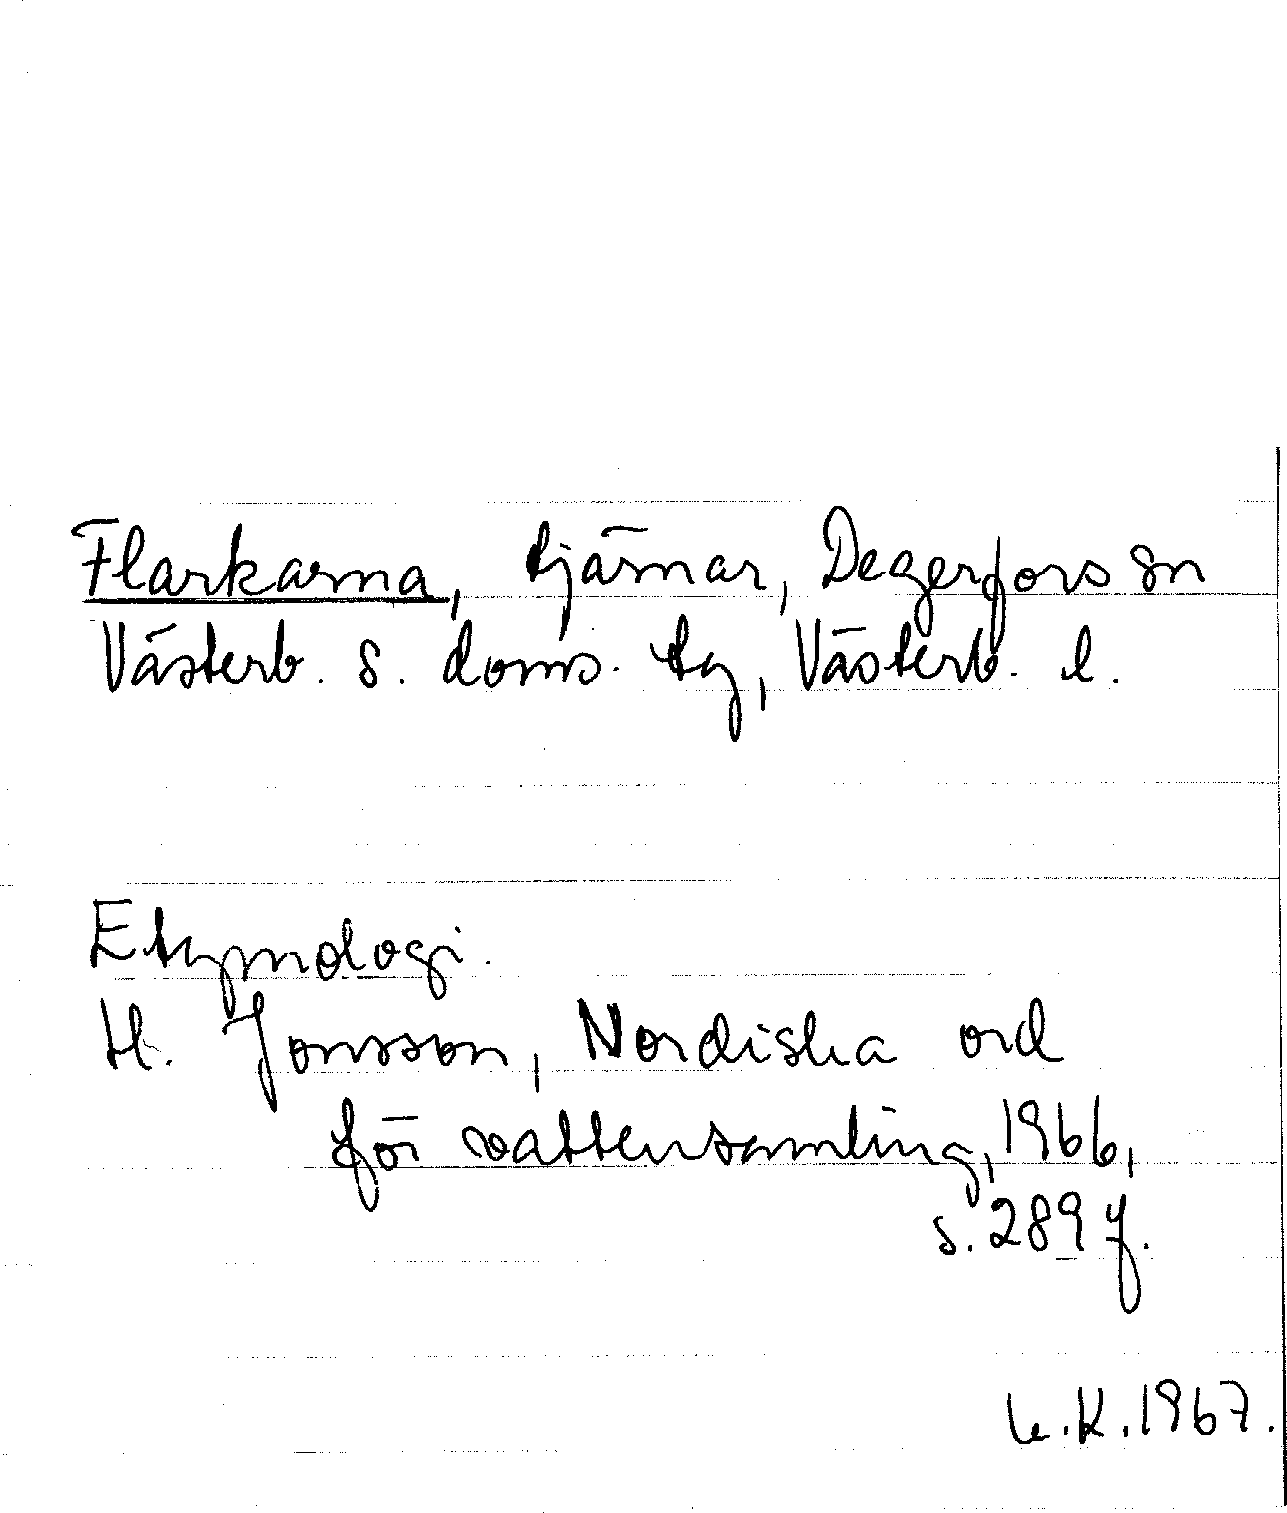 Flarkarna, tjärnar, Degerfors sn
Västerb. s. doms. tg, Västerb. l.
Etymologi.
H. Jonsson, Nordiska ord
för vattensamling, 1966,
s. 289 f.
K. 1967.